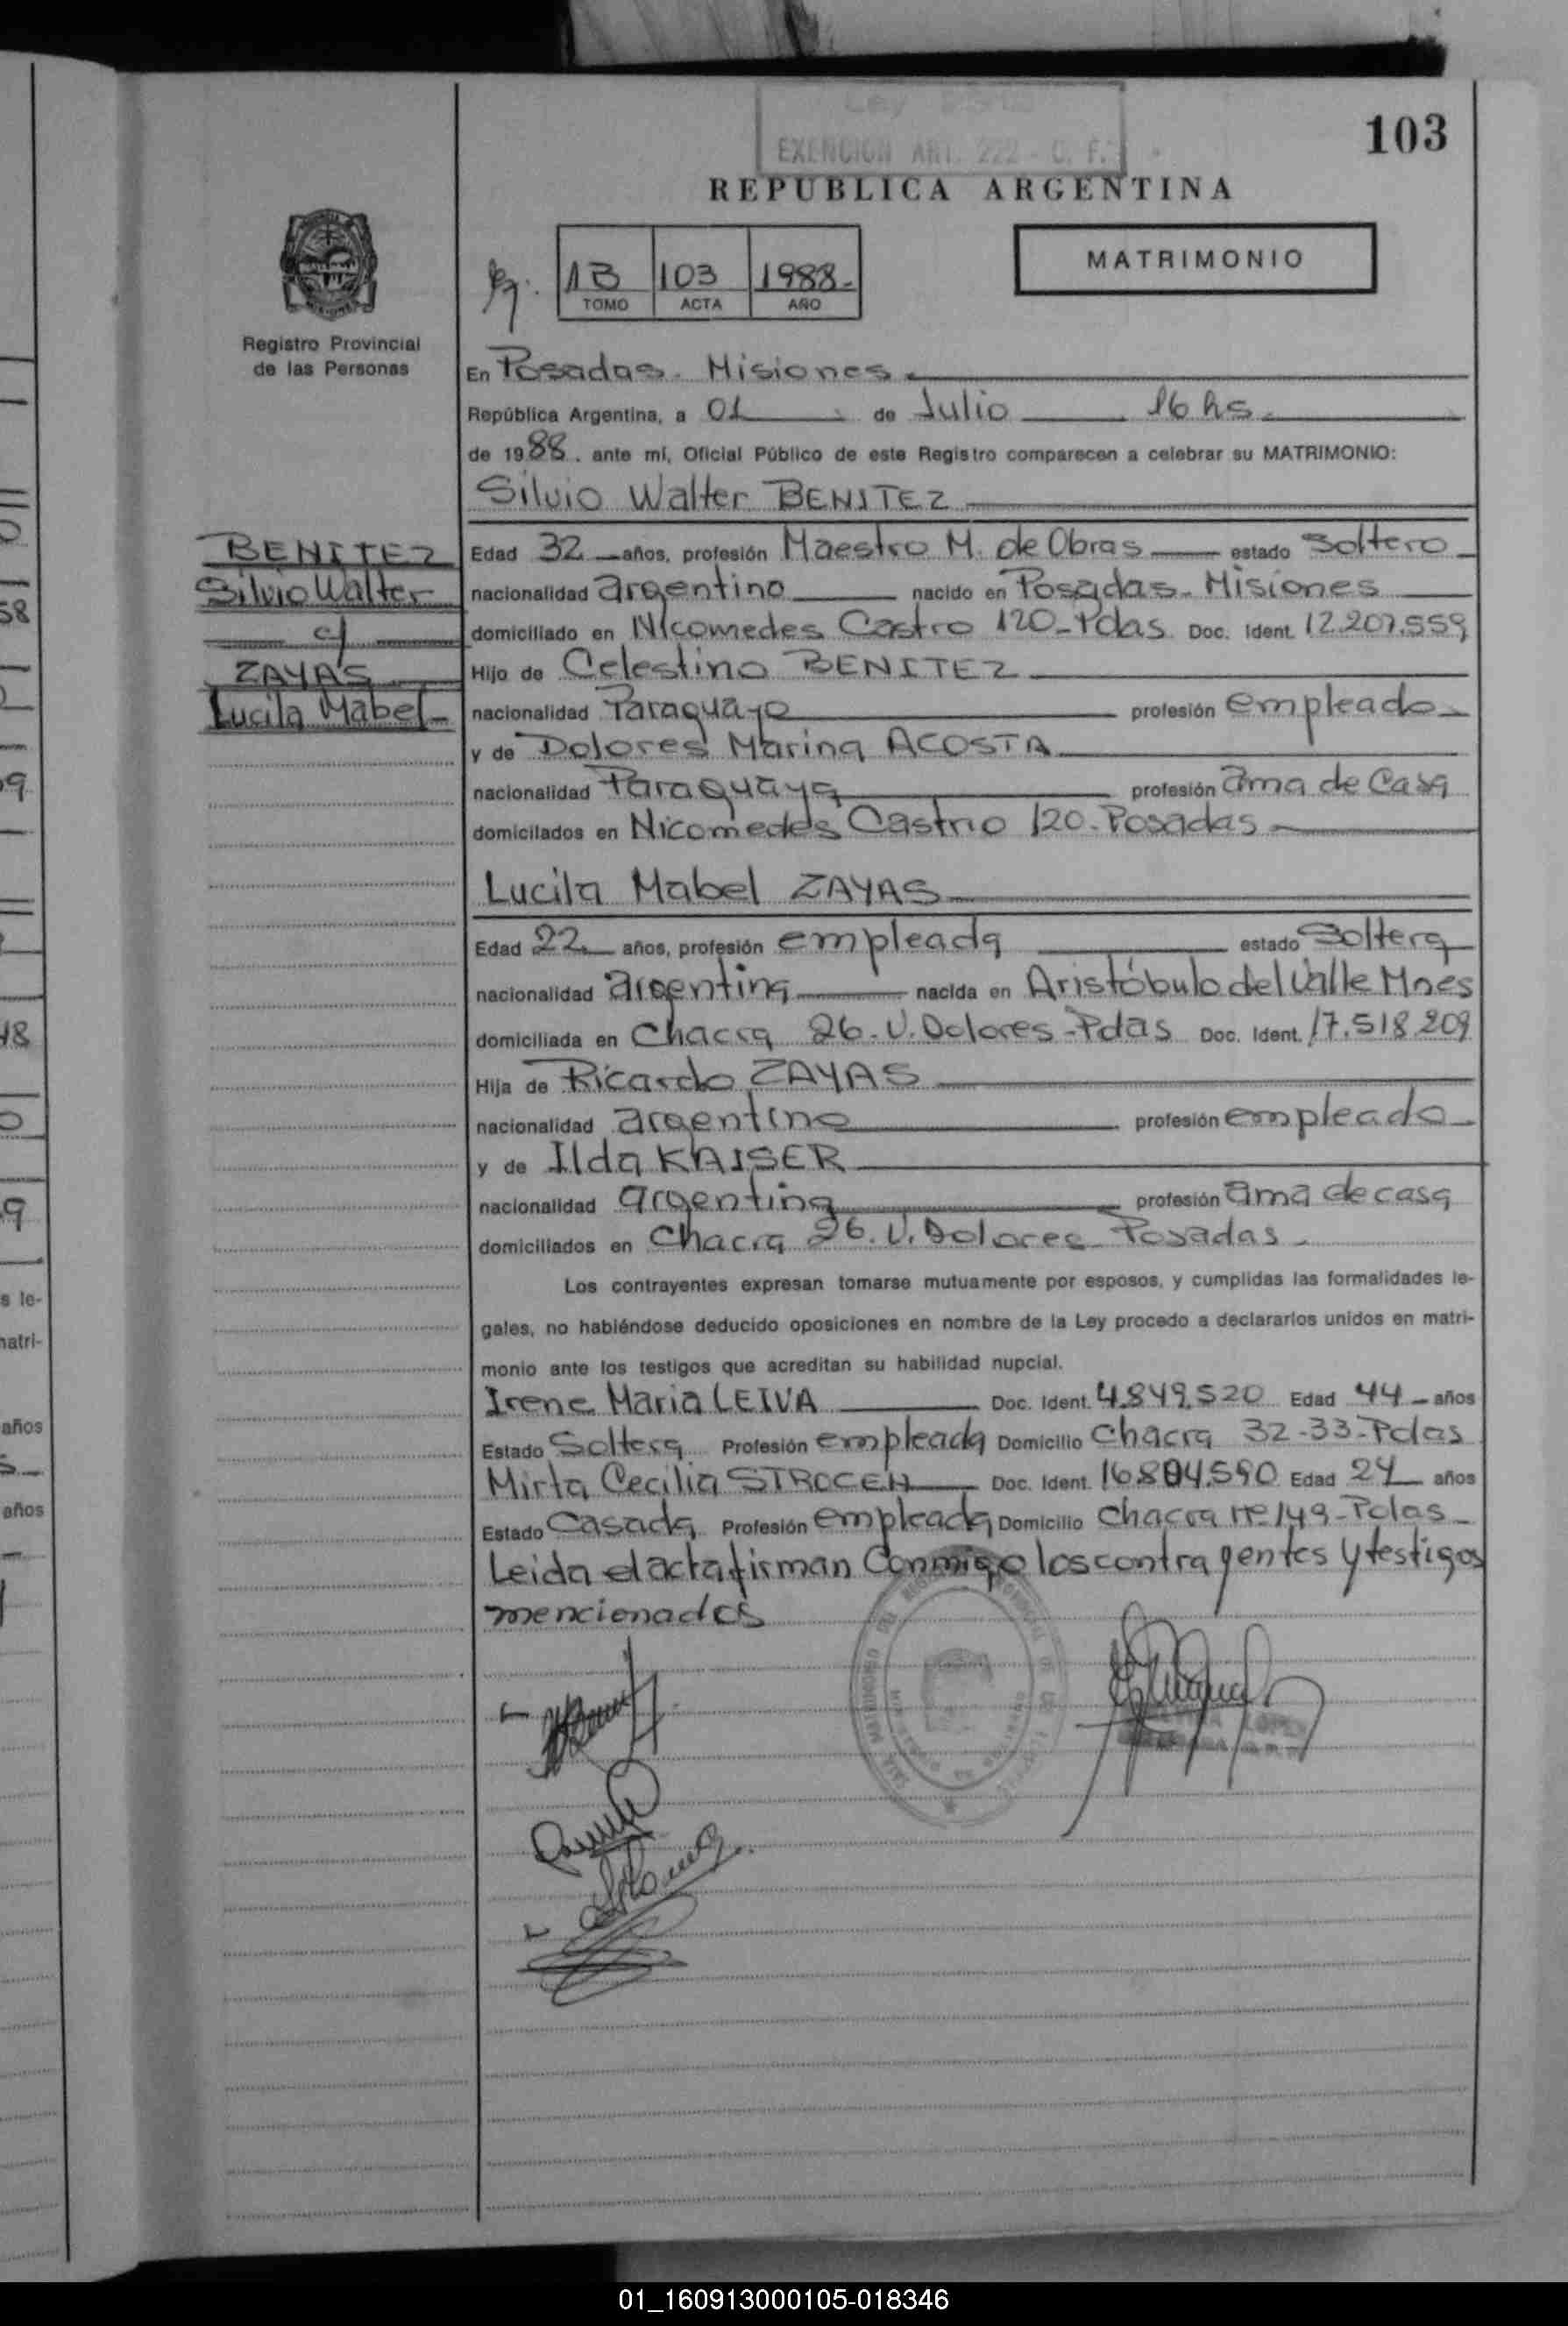 103
EXENCION ART. 222 - C. F.
REPUBLICA ARGENTINA
MATRIMONIO
1B 103 1988.
TOMO ACTA AÑO
Registro Provincial
de las Personas
En Posadas - Misiones
República Argentina, a 01 de Julio 16 hs.
de 1988. ante mí, Oficial Público de este Registro comparecen a celebrar su MATRIMONIO:
Silvio Walter BENITEZ
BENITEZ
Silvio Walter
c/
ZAYAS
Lucila Mabel
Edad 32 años, profesión Maestro M. de Obras estado Soltero
nacionalidad argentino nacido en Posadas - Misiones
domiciliado en Nicomedes Castro 120 - Pdas Doc. Ident. 12.207.559
Hijo de Celestino BENITEZ
nacionalidad Paraguayo profesión empleado
y de Dolores Marina ACOSTA
nacionalidad Paraguaya profesión ama de Casa
domicilados en Nicomedes Castro 120 - Posadas
Lucila Mabel ZAYAS
Edad 22 años, profesión empleada estado Soltera
nacionalidad argentina nacida en Aristóbulo del Valle Mnes
domiciliada en Chacra 26 - V. Dolores - Pdas Doc. Ident. 17.518.209
Hija de Ricardo ZAYAS
nacionalidad argentino profesión empleado
y de Ilda KAISER
nacionalidad argentina profesión ama de casa
domiciliados en Chacra 26. V. Dolores - Posadas.
Los contrayentes expresan tomarse mutuamente por esposos, y cumplidas las formalidades le-
gales, no habiéndose deducido oposiciones en nombre de la Ley procedo a declararlos unidos en matri-
monio ante los testigos que acreditan su habilidad nupcial.
Irene Maria LEIVA Doc. Ident. 4.849.520 Edad 44 años
Estado Soltera Profesión empleada Domicilio Chacra 32-33 - Pdas
Mirta Cecilia STROCEN Doc. Ident. 16.804.590 Edad 24 años
Estado Casada Profesión empleada Domicilio Chacra Nº 149 - Pdas
Leida el acta firman Conmigo los contrayentes y testigos
mencionados
01_160913000105-018346